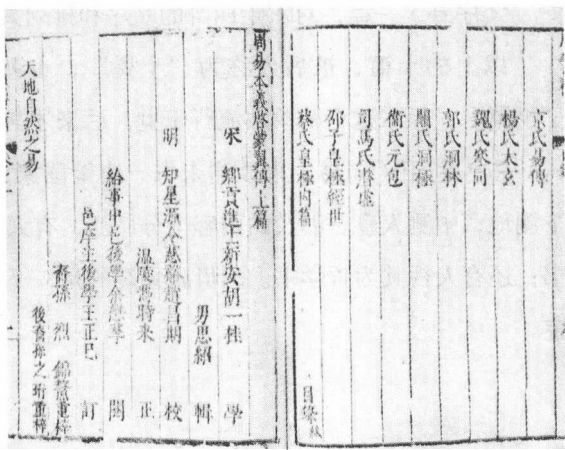 京氏易傳
楊氏太玄
魏氏參同
郭氏洞林
關氏洞極
衞氏元包
司馬氏潛虛
邵子皇極經世
蔡氏皇極內篇
目錄終
周易本義啓蒙翼傳上篇
宋 鄉貢進士新安胡一桂 學
男思紹 輯
明 知星源令慈谿趙 期 校
溫陵 特來 正
給事中邑後學余懋學 閱
邑庠生後學王正巳 訂
裔孫 烈 重梓
後裔孫之珩重梓
天地自然之易